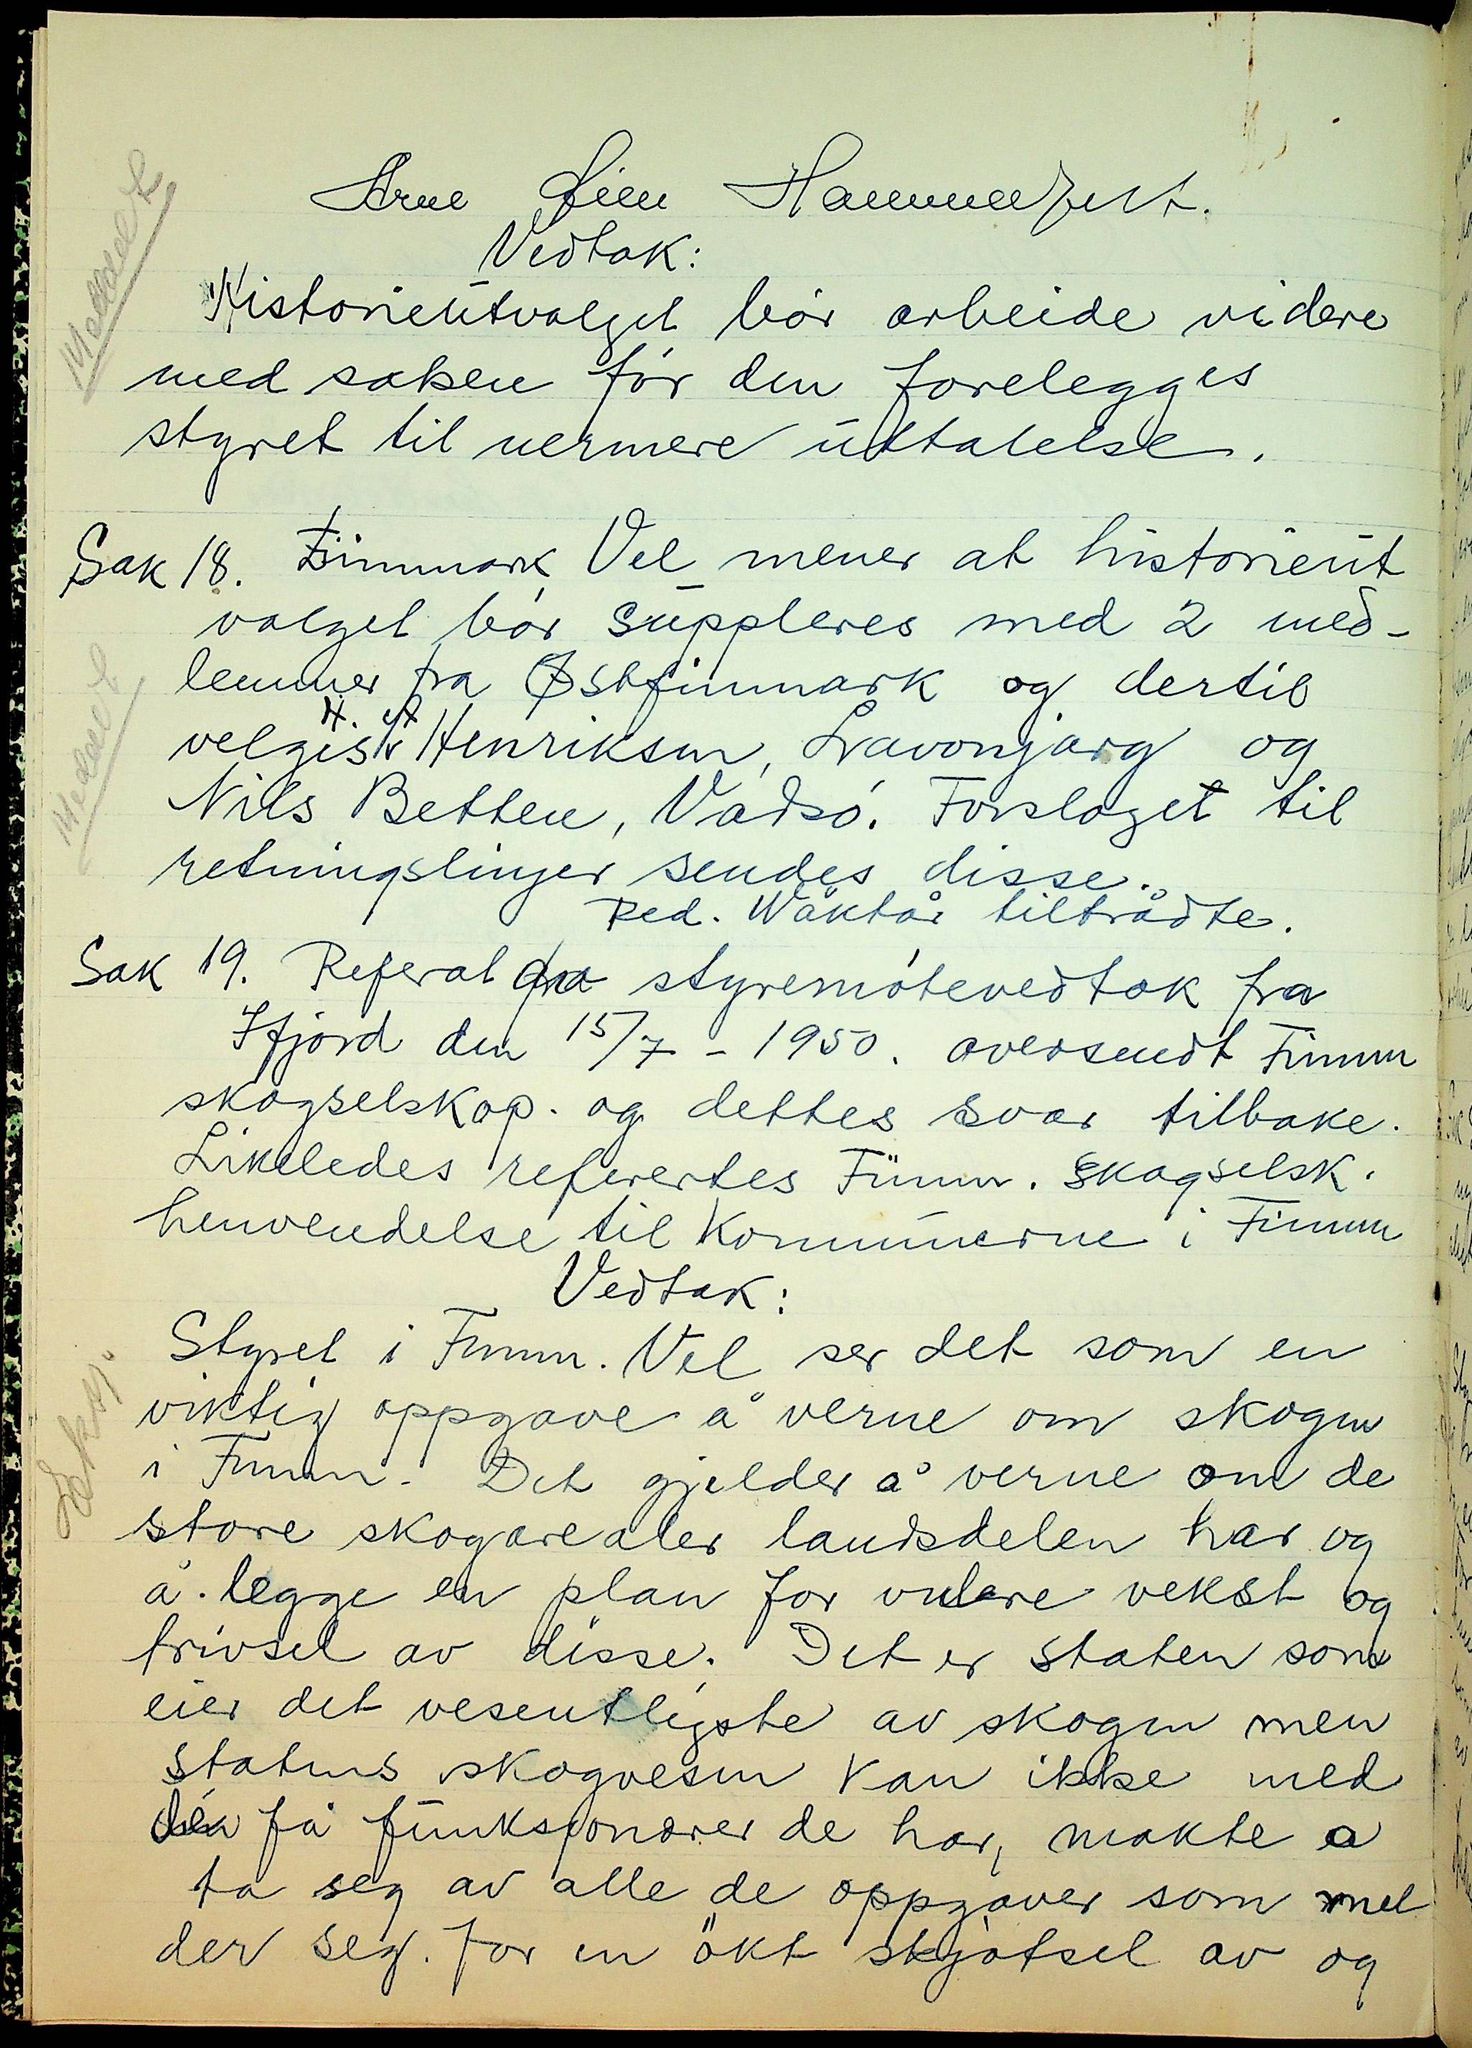 Arne Øien Hammerfest.
Vedtak:
Meddelt
Historieutvalget bór arbeide videre
med saken fór den forelegges
styret til nermere uttalelse.
Sak 18. Finnmark Vel mener at historieut
valget bór suppleres med 2 med-
lemmer fra Østfinnmark og dertil
Meddelt
velges H. Henriksen, Lavonjarg og
Nils Betten, Vadsó. Forslaget til
retningslinjer sendes disse.
Red. Wäktår tiltrådte.
Sak 19. Referat fra styremótevedtak fra
Ifjord den 15/7 - 1950. oversendt Finnm
skogselskap. og dettes svar tilbake.
Likeledes referertes Finnm. skogselsk.
henvendelse til kommunerne i Finnm
Vedtak:
Styret i Finnm. Vel ser det som en
viktig oppgave å verne om skogen
i Finnm. Det gjelder å verne om de
store skogarealer landsdelen har og
å legge en plan for videre vekst og
trivsel av disse. Det er staten som
eier det vesentligste av skogen men
statens skogvesen kan ikke med
de få funksjonærer de har, makte å
ta seg av alle de oppgaver som mel
der seg. for en ökt skjótsel av og